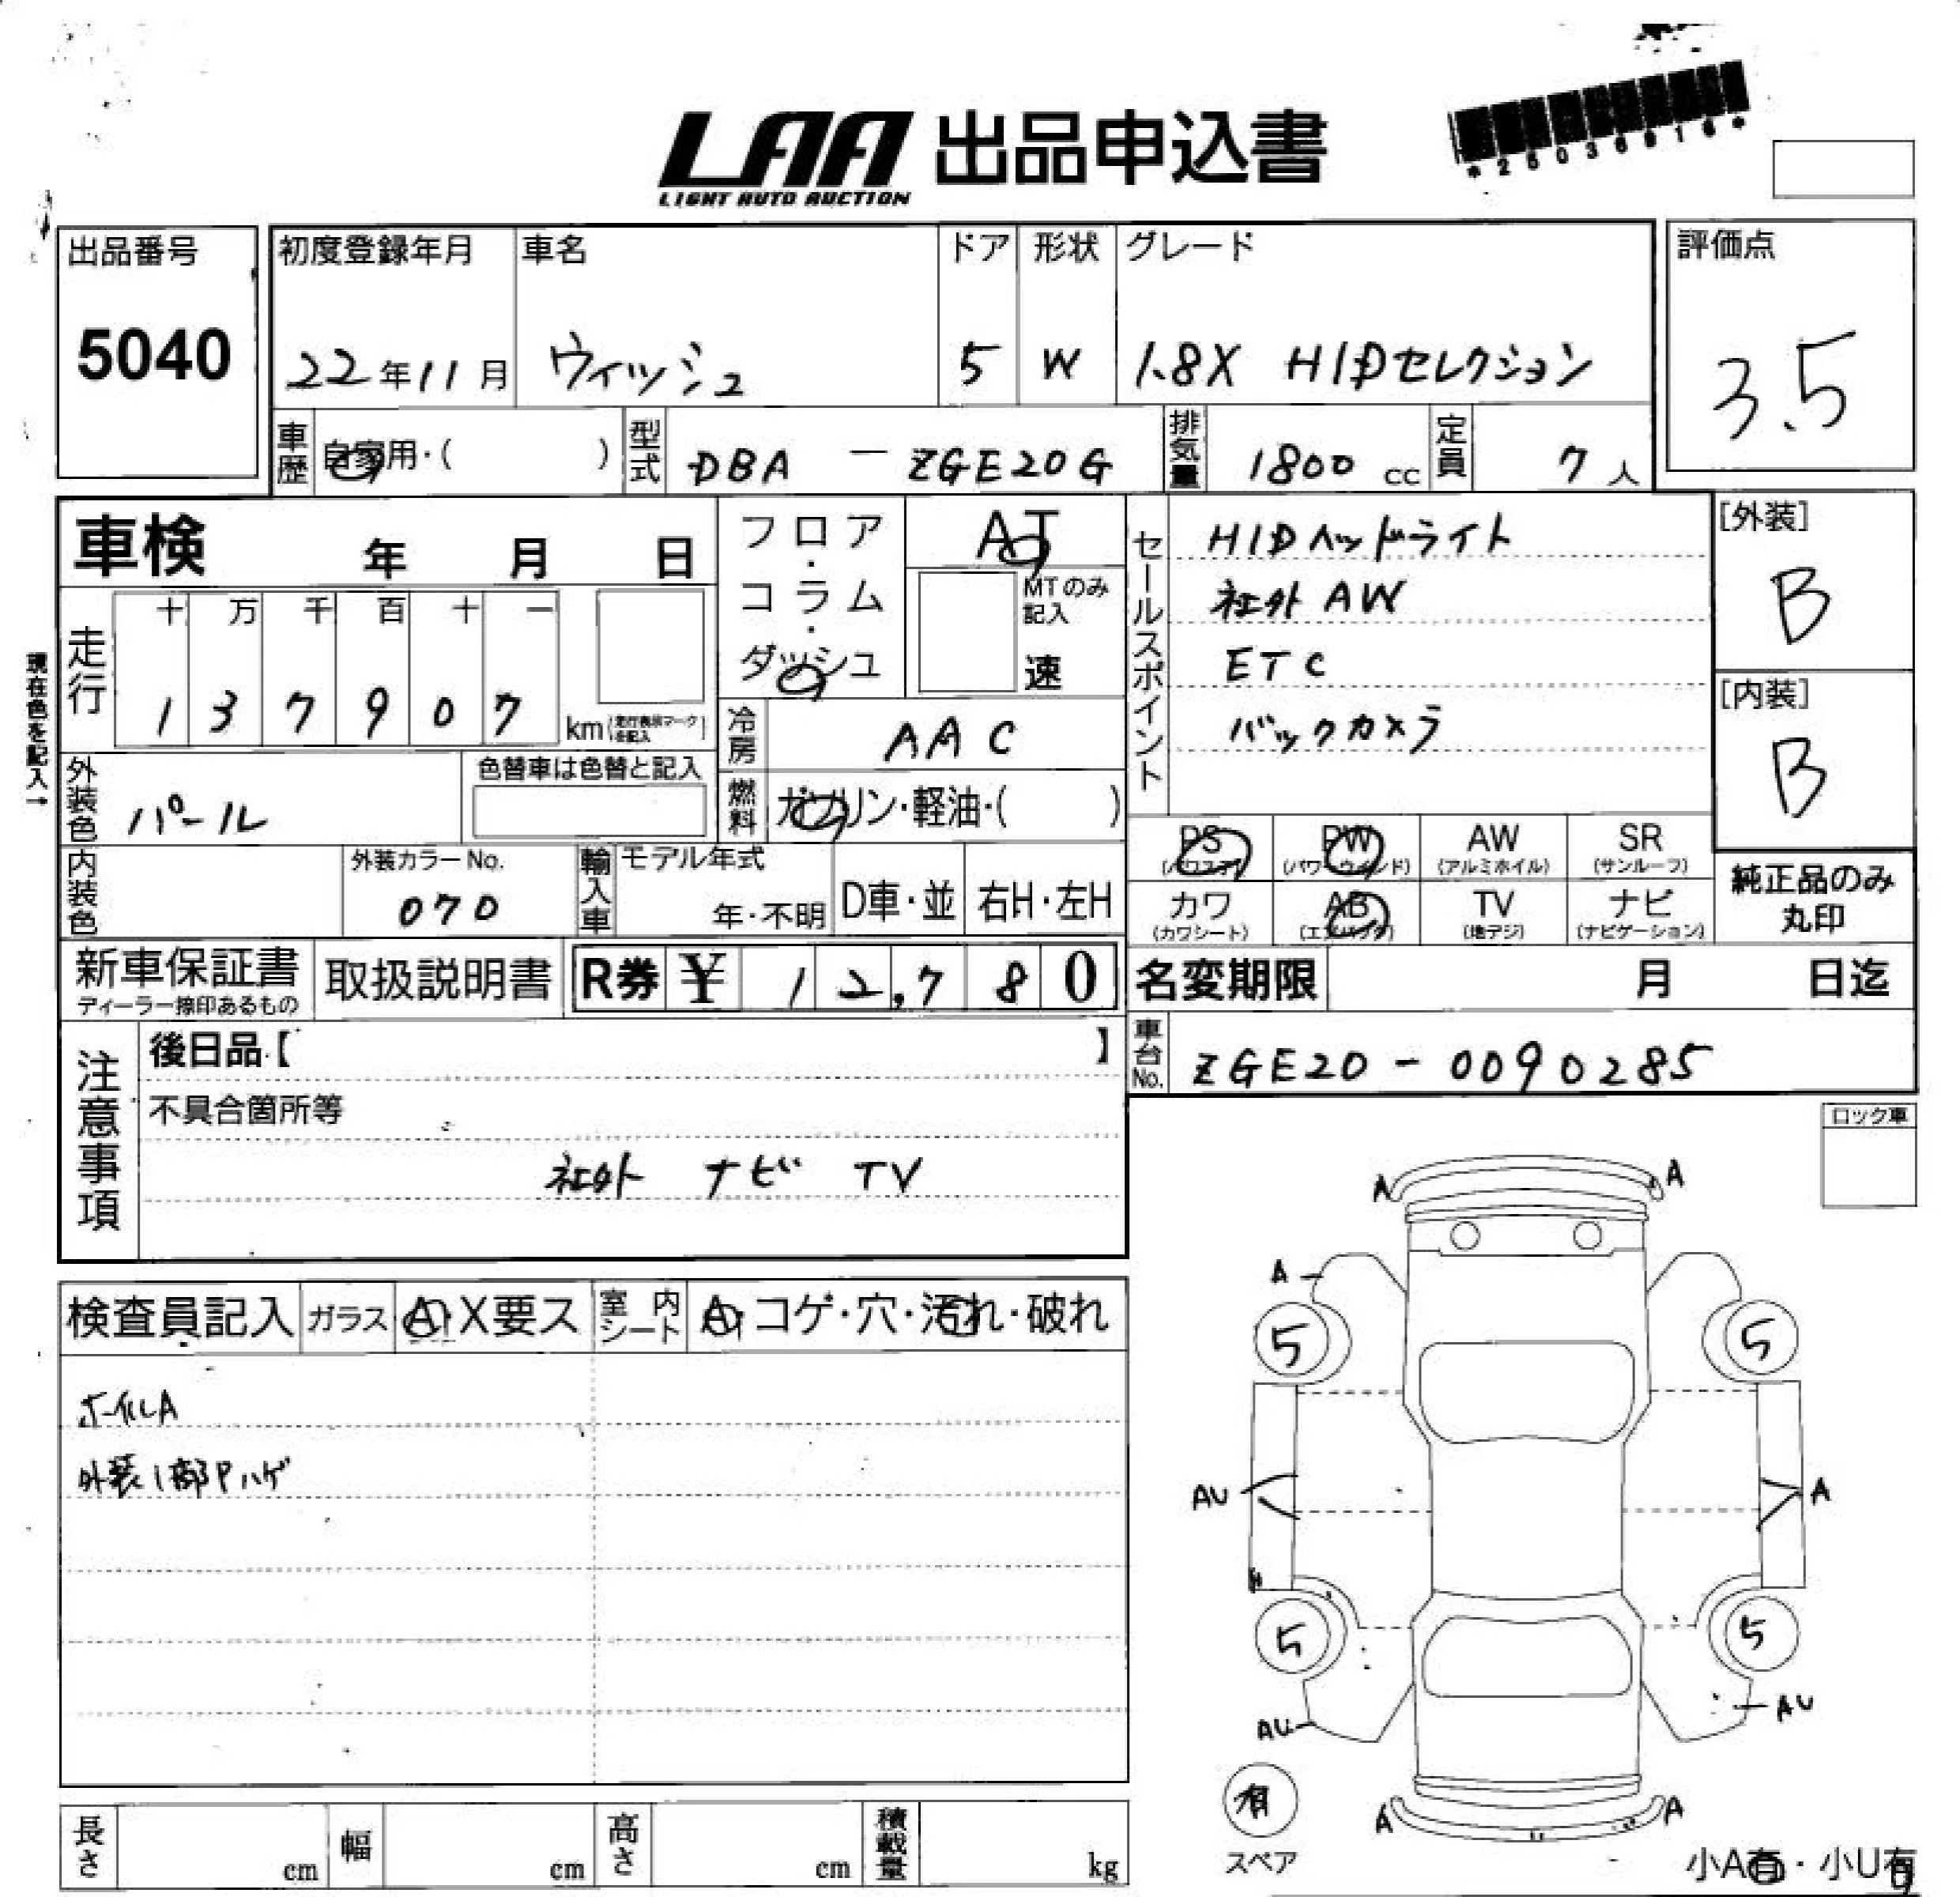 LAA 出品申込書
LIGHT AUTO AUCTION
出品番号
5040
初度登録年月
22年11月
車名
ウィッシュ
ドア
5
形状
W
グレード
1.8X HIDセレクション
評価点
3.5
車歴
自家用・( )
型式
DBA - ZGE20G
排気量
1800 cc
定員
7人
車検 年 月 日
フロア・コラム・ダッシュ
AT
MTのみ記入
速
セールスポイント
HIDヘッドライト
社外AW
ETC
バックカメラ
[外装]
B
[内装]
B
現在色を記入→
走行
十 万 千 百 十 一
1 3 7 9 0 7
km
冷房
AAC
燃料
ガソリン・軽油・( )
外装色
パール
色替車は色替と記入
内装色
外装カラーNo.
070
輸入車
モデル年式
年・不明
D車・並
右H・左H
PS (パワステ)
PW (パワーウインド)
AW (アルミホイル)
SR (サンルーフ)
カワ (カワシート)
AB (エアバッグ)
TV (地デジ)
ナビ (ナビゲーション)
純正品のみ丸印
新車保証書
ディーラー捺印あるもの
取扱説明書
R券 ¥ 12,780
名変期限 月 日迄
車台No.
ZGE20-0090285
注意事項
後日品【 】
不具合箇所等
社外 ナビ TV
ロック車
検査員記入
ガラス
A・X要ス
室内シート
A・コゲ・穴・汚れ・破れ
ホイルA
外装1部Pハゲ
A A
A
5 5
AU A
5 5
AU AU
有
スペア
A A
小A有・小U有
長さ cm
幅 cm
高さ cm
積載量 kg